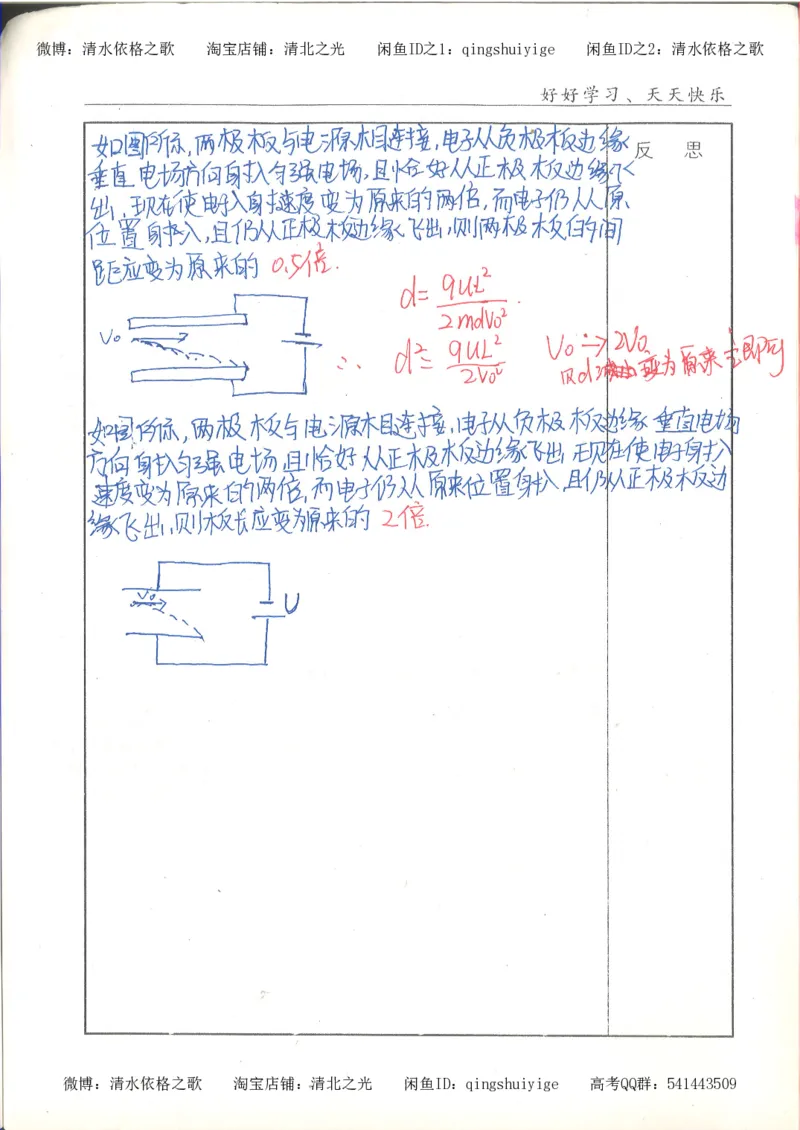 微博：清水依格之歌 淘宝店铺：清北之光 闲鱼ID之1：qingshuiyige 闲鱼ID之2：清水依格之歌
好好学习、天天快乐
反 思
如图所示,两极板与电源相连接,电子从负极板边缘
垂直电场方向射入匀强电场,且恰好从正极板边缘飞
出,现在使电子入射速度变为原来的两倍,而电子仍从原
位置射入,且仍从正极板边缘飞出,则两极板的间
距应变为原来的 0.5倍.
d= qUL² / 2mdV₀²
V₀
∴ d²= qUL² / 2V₀²
V₀ → 2V₀
只d 变为原来 ½即可
如图所示,两极板与电源相连接,电子从负极板边缘垂直电场
方向射入匀强电场,且恰好从正极板边缘飞出,现在使电子射入
速度变为原来的两倍,而电子仍从原来位置射入,且仍从正极板边
缘飞出,则板长应变为原来的 2倍.
V₀
U
微博：清水依格之歌 淘宝店铺：清北之光 闲鱼ID：qingshuiyige 高考QQ群：541443509